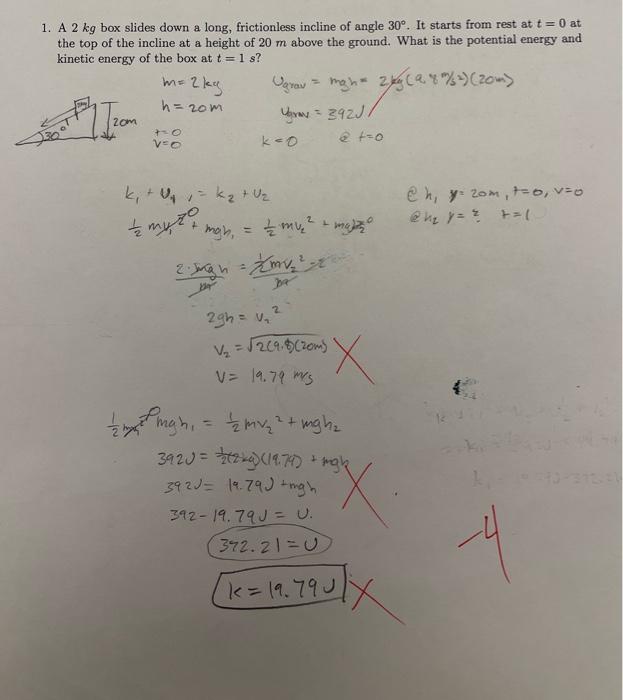 1. A 2 kg box slides down a long, frictionless incline of angle 30°. It starts from rest at t = 0 at
the top of the incline at a height of 20 m above the ground. What is the potential energy and
kinetic energy of the box at t = 1 s?
m = 2 kg
h = 20m
t=0
v=0
20m
30°
Ugrav = mgh = 2kg(9.8 m/s²)(20m)
Ugrav = 392J
k=0 @ t=0
k₁ + U₁ = k₂ + U₂
@ h₁ y= 20m, t=0, v=0
@ h₂ y= ? t=1
½ mv₁² 0 + mgh₁ = ½ mv₂² + mgh₂ 0
2·mgh = ½mv₂²·2
m m
2gh = v₂²
v₂ = √2(9.8)(20m)
V= 19.79 m/s
½ mv₁² 0 mgh₁ = ½mv₂² + mgh₂
392J = ½(2kg)(19.79) + mgh
392J = 19.79J + mgh
392 - 19.79J = U.
372.21 = U
k = 19.79J
-4